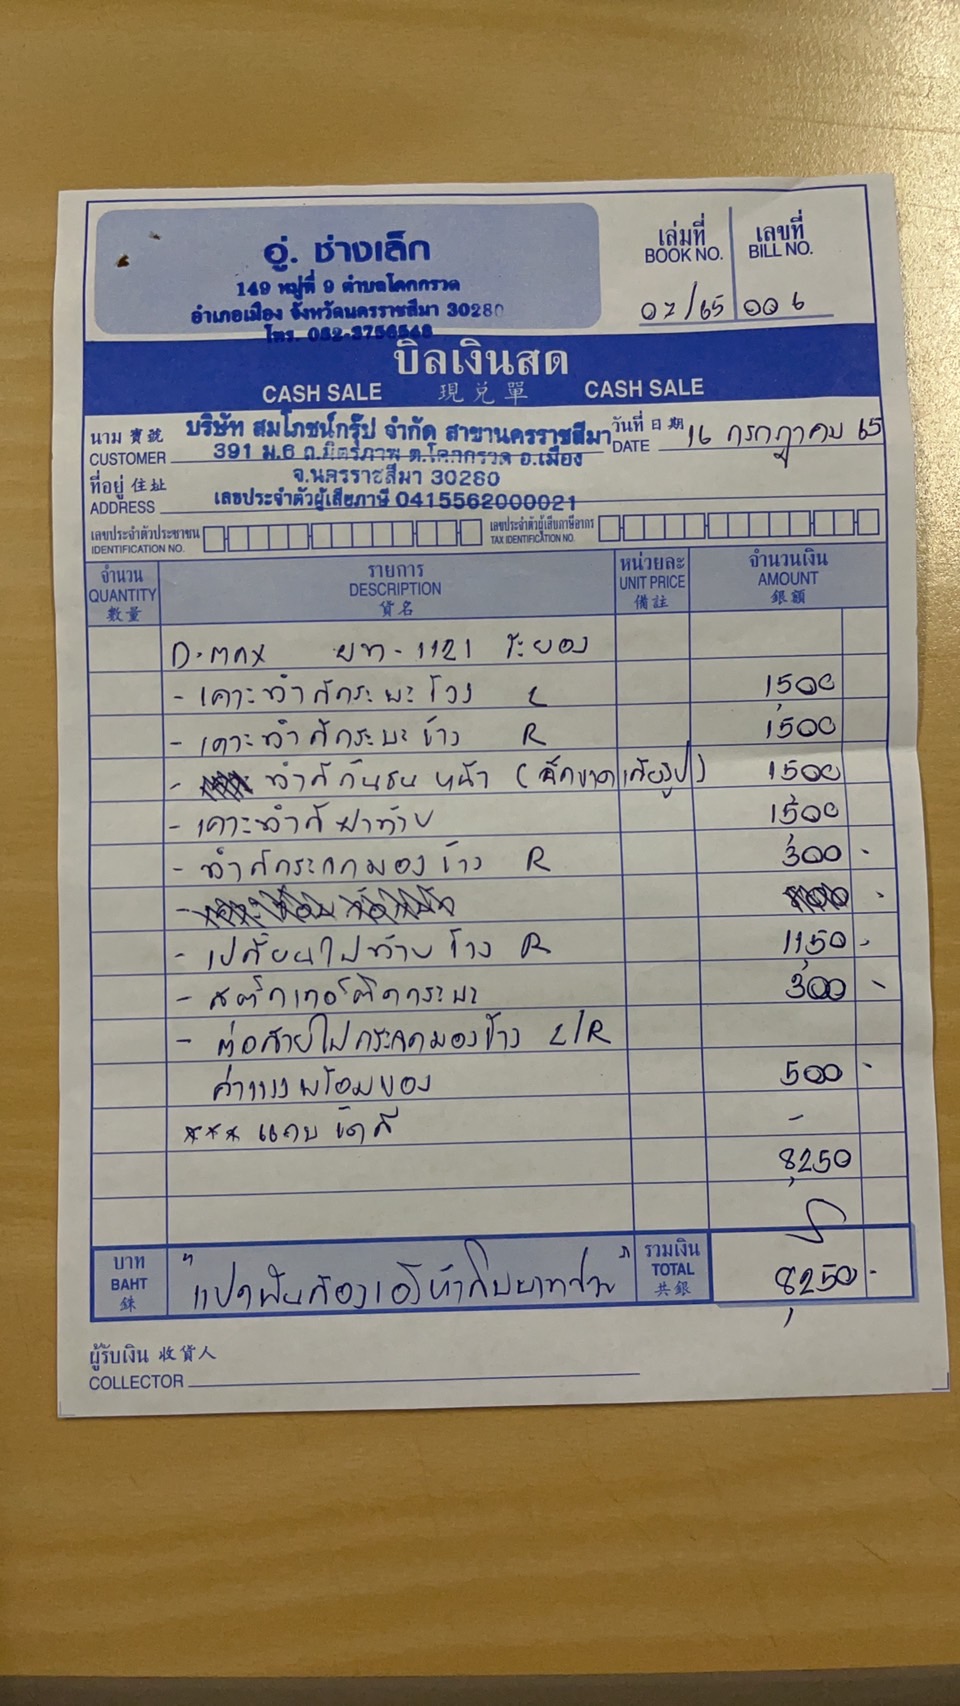 อู่. ช่างเล็ก
149 หมู่ที่ 9 ตำบลโคกกรวด
อำเภอเมือง จังหวัดนครราชสีมา 30280
โทร. 082-3756548
เล่มที่ เลขที่
BOOK NO. BILL NO.
07/65 006
บิลเงินสด
CASH SALE 現兌單 CASH SALE
นาม 寳號 บริษัท สมโภชน์กรุ๊ป จำกัด สาขานครราชสีมา วันที่ 日期 16 กรกฎาคม 65
CUSTOMER 391 ม.6 ถ.มิตรภาพ ต.โคกกรวด อ.เมือง DATE
ที่อยู่ 住址 จ.นครราชสีมา 30280
ADDRESS เลขประจำตัวผู้เสียภาษี 0415562000021
เลขประจำตัวประชาชน เลขประจำตัวผู้เสียภาษีอากร
IDENTIFICATION NO. TAX IDENTIFICATION NO.
จำนวน รายการ หน่วยละ จำนวนเงิน
QUANTITY DESCRIPTION UNIT PRICE AMOUNT
數量 貨名 備註 銀額
D-max ยท-1121 ระยอง
- เคาะทำสีกระบะข้าง L 1,500
- เคาะทำสีกระบะข้าง R 1,500
- ทำสีกันชนหน้า (ฉีกขาดเสียรูป) 1,500
- เคาะทำสีฝาท้าย 1,500
- ทำสีกระจกมองข้าง R 300 -
- เปลี่ยนไฟท้ายข้าง R 1,150 -
- สติ๊กเกอร์ติดกระบะ 300 -
- ต่อสายไฟกระจกมองข้าง L/R
ค่าแรงพร้อมของ 500 -
*** แถบขัดสี -
8,250
บาท รวมเงิน
BAHT "แปดพันสองร้อยห้าสิบบาทถ้วน" TOTAL 8,250 -
銖 共銀
ผู้รับเงิน 收貨人
COLLECTOR